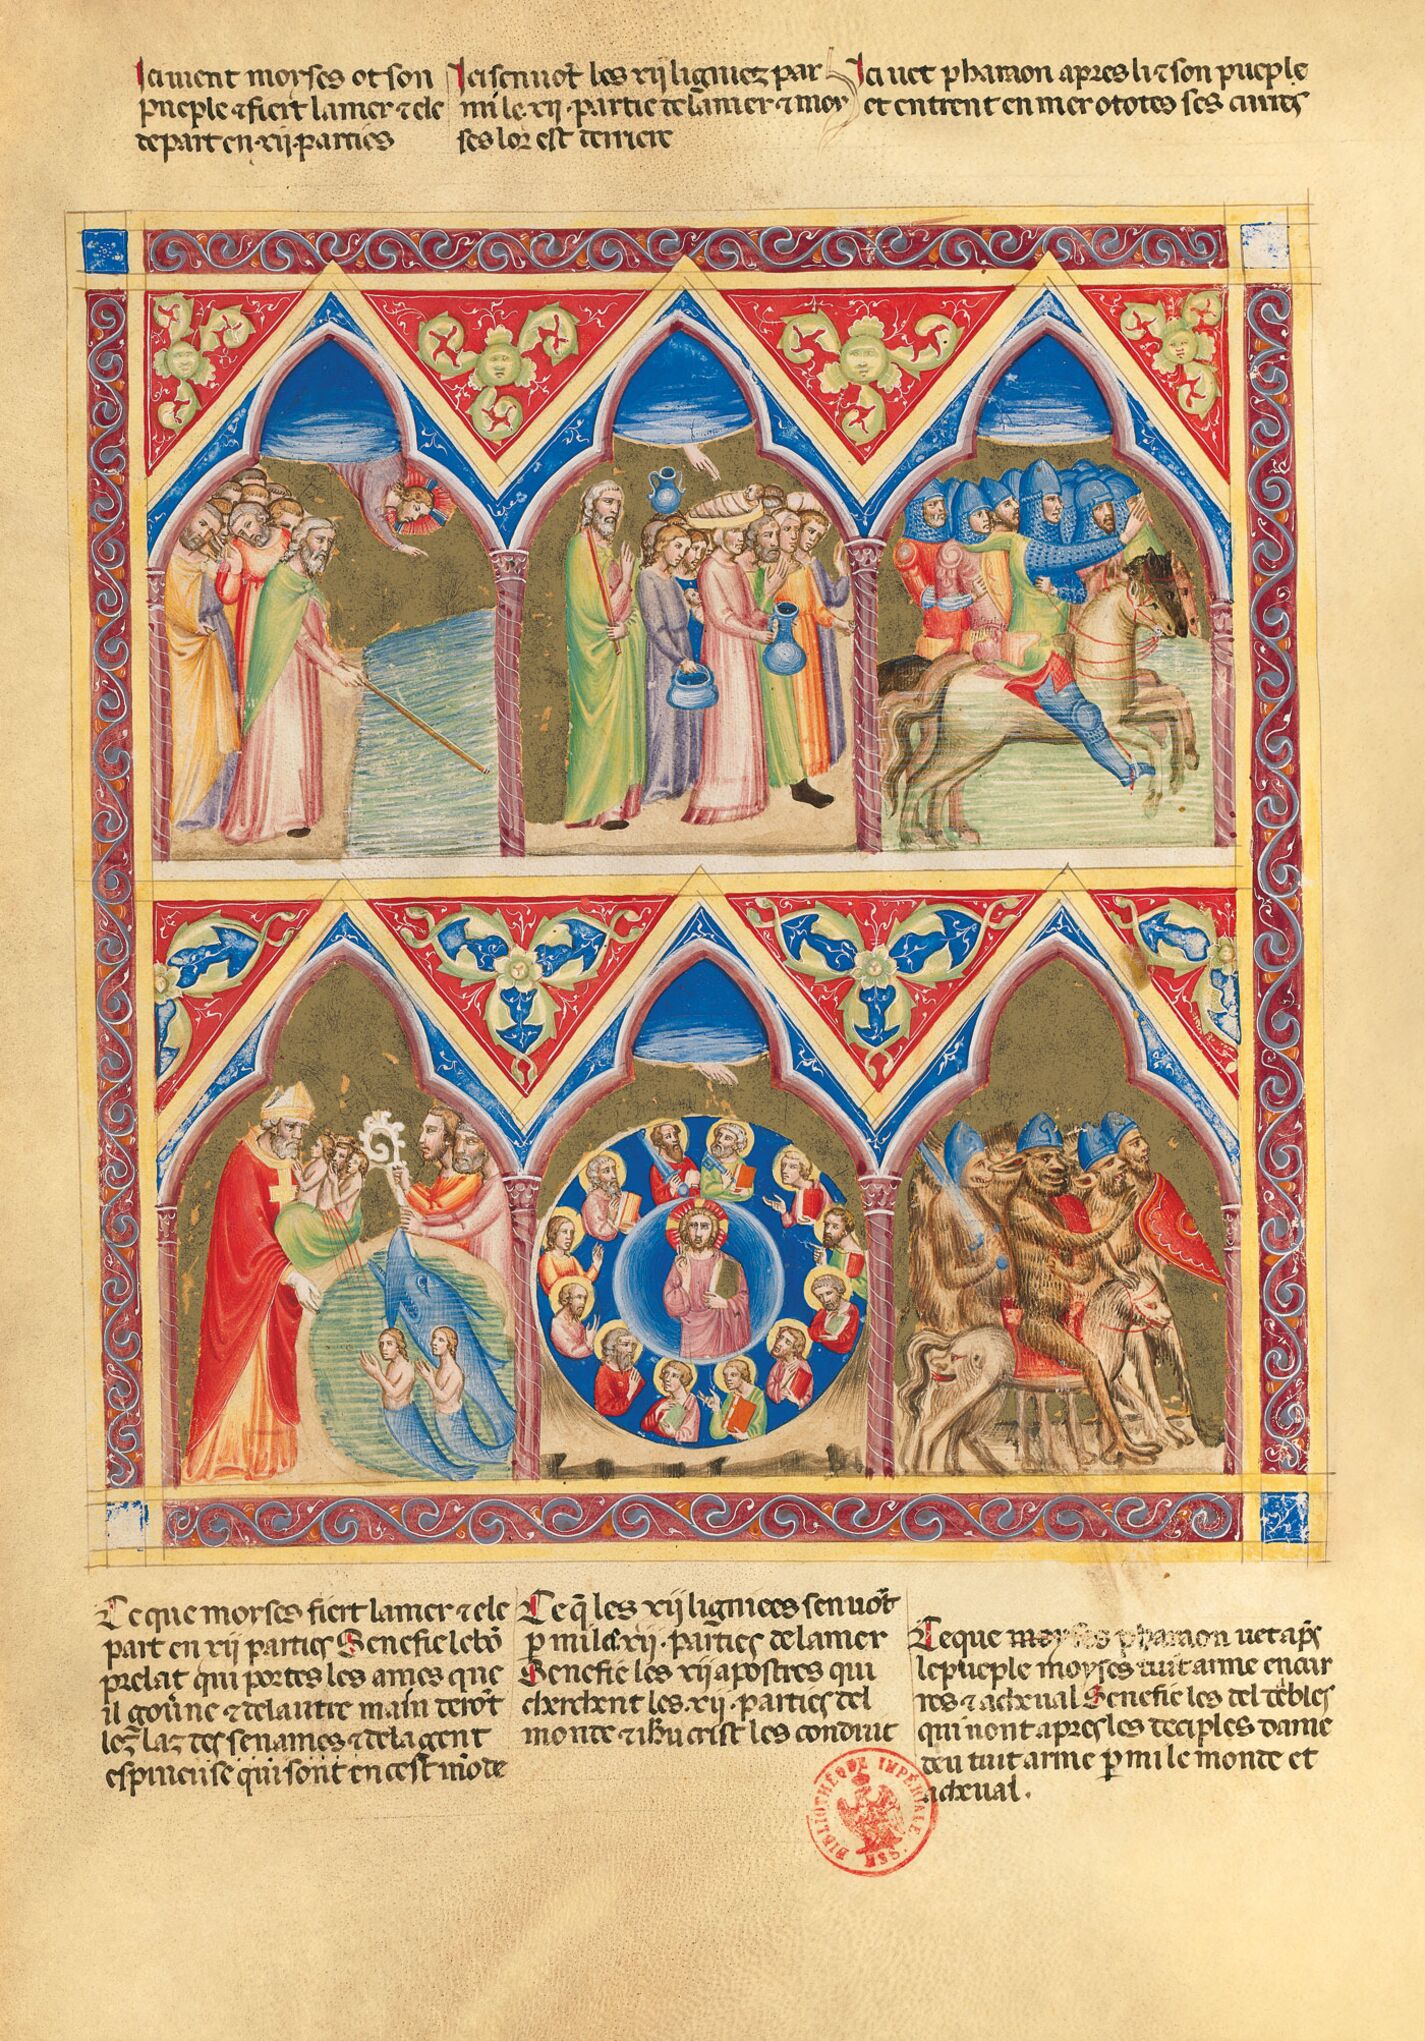 Ici uient moyses ot son
pueple ⁊ fiert la mer ⁊ ele
depart en ·xij· parties
Ici sen uōt les xij ligniez par
mi le ·xij· partie de la mer ⁊ moy
ses lor est derriere
Ici uet pharaon apres li ⁊ son pueple
et entrent en mer o totes ses
Ce que moyses fiert la mer ⁊ ele
part en xij parties Senefie le bō
prelat qui portes les ames que
il gouerne ⁊ de lautre main
les ames ⁊ de la gent
espineuse qui sont en cest mōde
Ce q̄ les xij ligniees sen uōt
p mi les xij · parties de la mer
Senefie les xij apostres qui
cherchent les · xij · parties del
monde ⁊ ihū crist les conduit
Ce que moyses pharaon uet aps
le pueple moyses tuit arme en cur
res ⁊ a cheual Senefie les
qui uont apres les deciples dame
deu tuit arme p mi le monde et
a cheual ·
BIBLIOTHÈQUE IMPÉRIALE MSS.